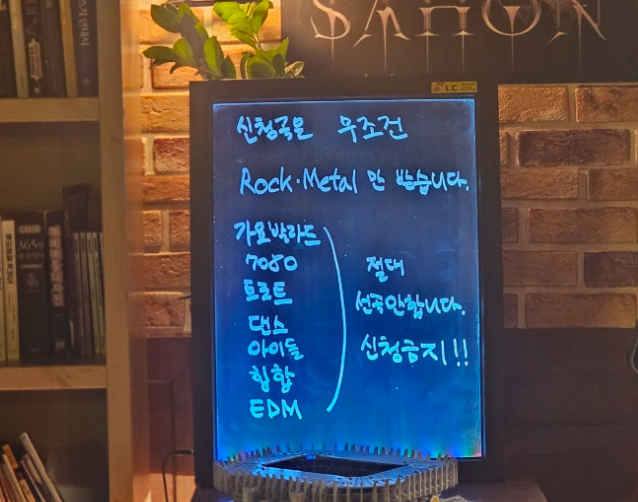 SAHON
LC
신청곡은 무조건
Rock·Metal 만 받습니다.
가요발라드
7080
트로트
댄스
아이돌
힙합
EDM
절대
선곡안합니다.
신청금지!!
365